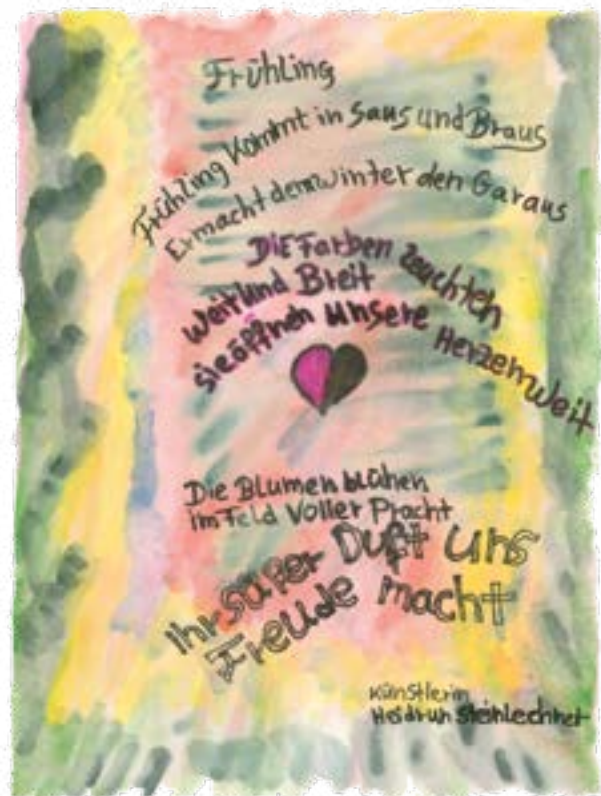 Frühling
Frühling kommt in Saus und Braus
Er macht dem Winter den Garaus
Die Farben leuchten
weit und Breit
sie öffnen unsere Herzen weit
Die Blumen blühen
im Feld voller Pracht
Ihr süßer Duft uns
Freude macht
Künstlerin
Heidrun Steinlechner